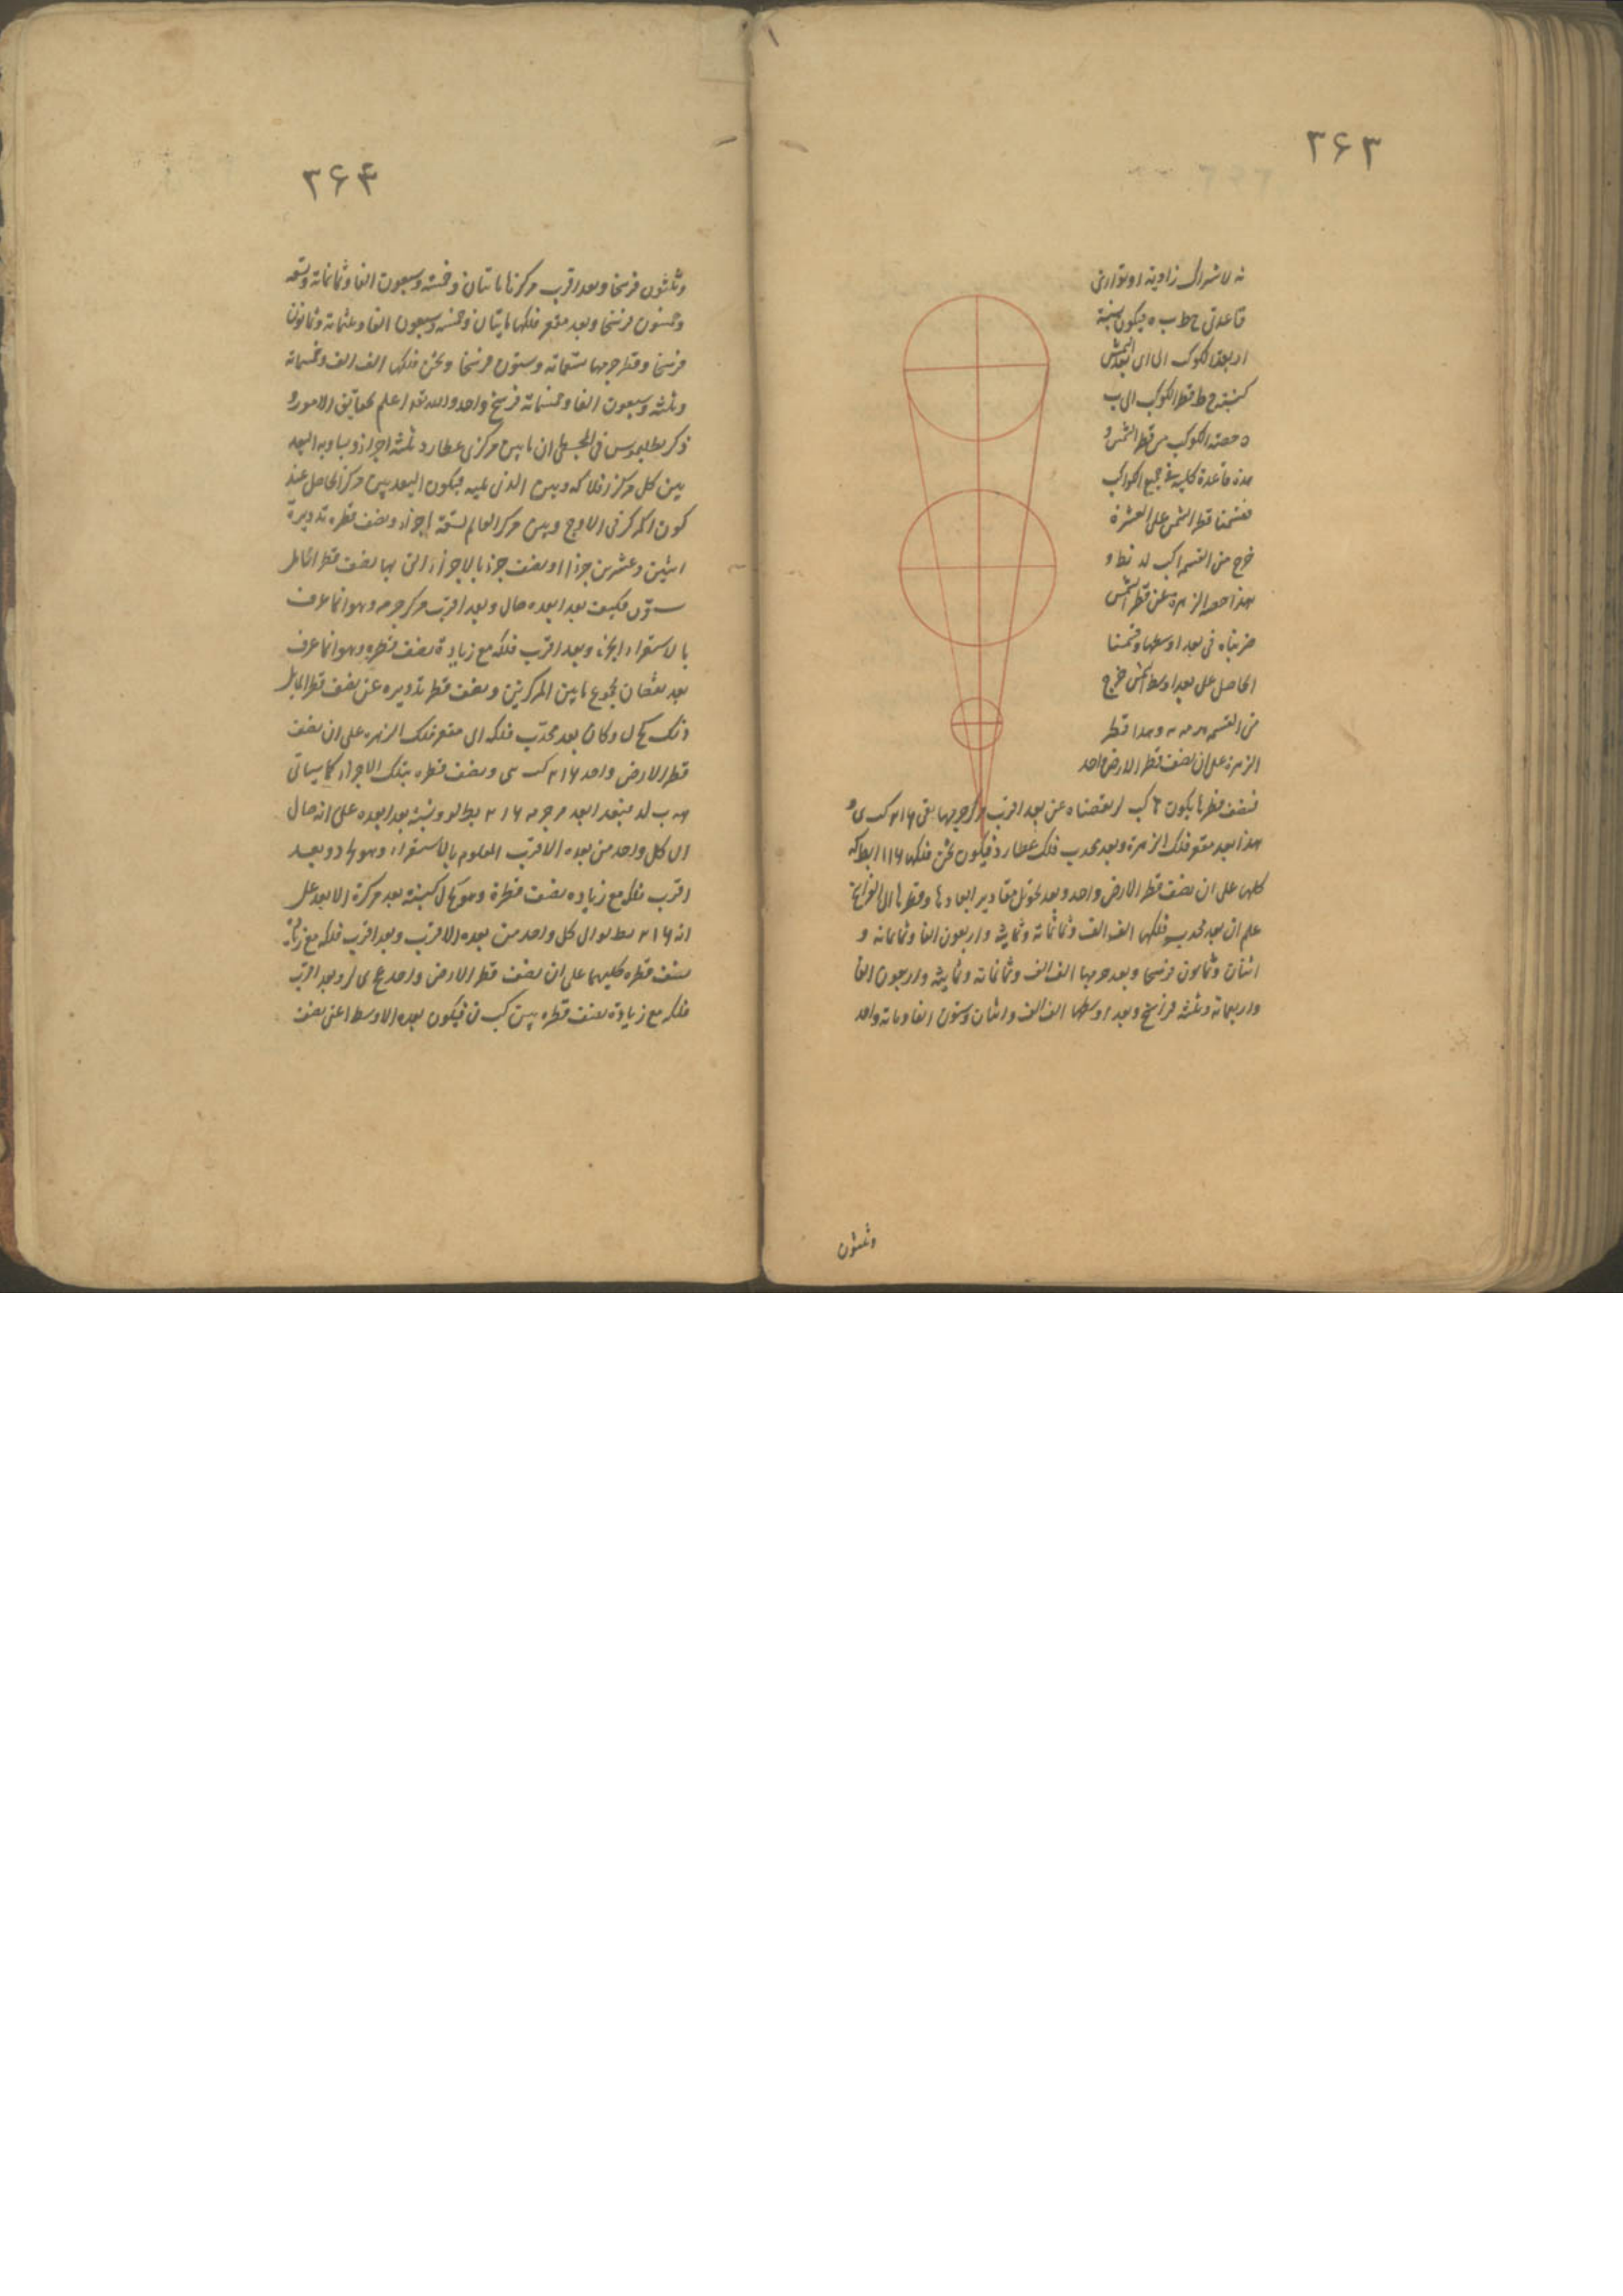 ۳۶۳
نه لاشتراك زاوية ا وتوازى
قاعدتى ح ط ب ه فيكون نسبة
ا د بعد الكوكب الى ا ى بعد الشمس
كنسبة ح ط قطر الكوكب الى ب
ه حصة الكوكب من قطر الشمس و
هذه قاعدة كلية فى جميع الكواكب
فقسمنا قطر الشمس على العشرة
خرج من القسمة كب لد نط و
هذا حصة الزهرة من قطر الشمس
ضربناه فى بعد اوسطها وقسمنا
الحاصل على بعد اوسط الشمس خرج
من القسمة وهذا قطر
الزهرة على ان نصف قطر الارض واحد
فنصف قطرها يكون كب نقصناه عن بعد اقرب مركز جرمها بقى
هذا بعد مقعر فلك الزهرة وبعد محدب فلك عطارد فيكون ثخن فلكها
كلها على ان نصف قطر الارض واحد وبعد تحويل مقادير ابعادها وقطرها الى الفراسخ
علم ان بعد محدب فلكها الف الف وثمانمائة وثمانية واربعون الفا وثمانمائة و
اثنان وثمانون فرسخا وبعد جرمها الف الف وثمانمائة وثمانية واربعون الفا
واربعمائة وثلثة فراسخ وبعد اوسطها الف الف واثنان وستون الفا ومائة واحد
وثلثون
۳۶۴
وثلثون فرسخا وبعد اقرب مركزها مائتان وخمسة وسبعون الفا وثمانمائة وتسعة
وخمسون فرسخا وبعد مقعر فلكها مائتان وخمسة وسبعون الفا وثلثمائة وثمانون
فرسخا وقطر جرمها ستمائة وستون فرسخا وثخن فلكها الف الف وخمسمائة
وثلثة وسبعون الفا وخمسمائة فرسخ واحد والله تعالى اعلم بحقايق الامور و
ذكر بطليموس فى المجسطى ان ما بين مركزى عطارد ثلثة اجزاء ويساويه البعد
بين كل مركز افلاكه وبين الذى يليه فيكون البعد بين مركز الحامل عند
كون المركز فى الاوج وبين مركز العالم تسعة اجزاء ونصف قطر تدويره
اثنين وعشرين جزءا ونصف جزء بالاجزاء التى بها نصف قطر الحامل
ستون فكيف بعد ابعده حال وبعد اقرب مركز جرمه وهو انما عرف
بالاستقراء وبعد اقرب فلكه مع زيادة نصف قطره وهو انما عرف
بعد نقصان مجموع ما بين المركزين ونصف قطر تدويره عن نصف قطر الحامل
وكان بعد محدب فلكه الى مقعر فلك الزهرة على ان نصف
قطر الارض واحد ونصف قطره بتلك الاجزاء كما سياتى
فبعد ابعد مركز جرمه ونسبة بعد ابعده على انه حال
الى كل واحد من بعده الاقرب المعلوم بالاستقراء وهو وبعد
اقرب فلكه مع زيادة نصف قطره وهو كنسبة بعد مركزه الابعد على
انه الى كل واحد من بعده الاقرب وبعد اقرب فلكه مع زيادة
نصف قطره كليهما على ان نصف قطر الارض واحد وبعد اقرب
فلكه مع زيادة نصف قطره فيكون بعده الاوسط اعنى نصف